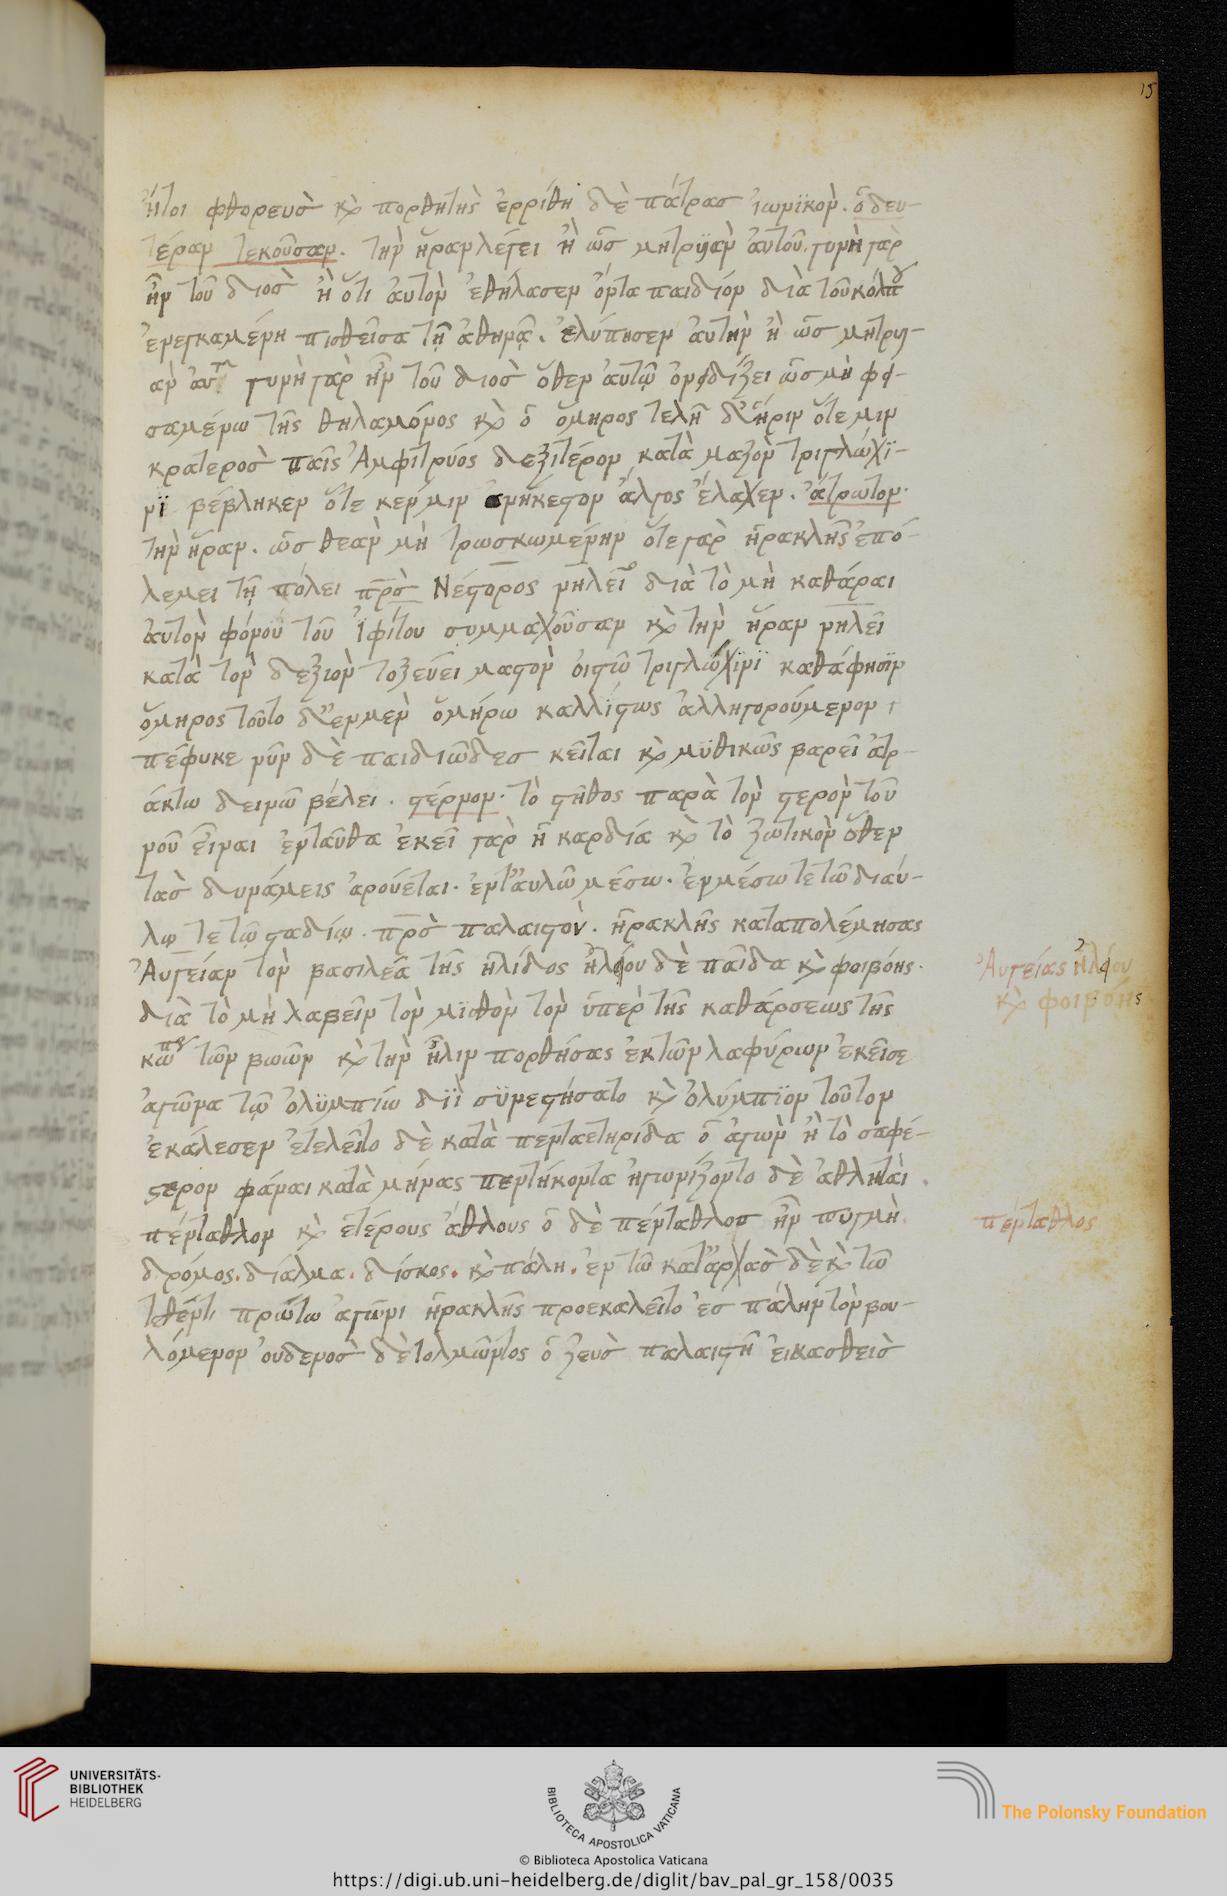 15
ἤτοι φθορεὺσ κ πορθητὴς ἐρρίθη δὲ πάτρασ ἰωνϊκὸν. ὁ δευ-
τέραν τεκοῦσαν. τὴν ἥραν λέγει ἢ ὡσ μητρϋὰν ἀυτοῦ. γυνὴ γὰρ
ἦν τοῦ διὸσ ἢ ὅτι ἀυτὸν ἐθήλασεν ὄντα παιδίον διὰ τοῦ κόλπου
ἐνεγκαμένη πισθεῖσα τῆ ἀθηνᾶ. ἐλύπησεν ἀυτὴν ἢ ὡσ μητρυ-
ὰν γυνὴ γὰρ ἦν τοῦ διὸσ ὅθεν ἀυτῶ
σαμένω τῆς κ ὁ ὅμηρος ὅτε μιν
κρατερὸσ παῖς Ἀμφιτρύος δεξιτέρον κατὰ μαζὸν τριγλώχϊ-
νϊ βέβληκεν ὅτε κεν μιν ἀνήκεστον ἄλγος ἔλαχεν. ἄτρωτον.
τὴν ἥραν. ὡσ θεὰν μὴ τρωσκωμένην ὅτε γὰρ ἡρακλῆς ἐπό-
λεμει τῆ πόλει πρὸσ Νέστορος διὰ τὸ μὴ καθάραι
ἀυτὸν φόνου τοῦ Ἰφίτου συμμαχοῦσαν κ τὴν ἥραν νηλεῖ
κατὰ τὸν δεξιὸν τοξεύει μαστὸν ὀιστῶ τριγλώχϊνϊ καθάφησϊν
ὅμηρος τοῦτο ὁμήρω καλλίστως ἀλληγορούμενον
πέφυκε νῦν δὲ παιδιῶδεσ κεῖται κ μϋθικῶς βαρεῖ ἀτρ-
άκτω δεινῶ βέλει. στέρνον. τὸ στῆθος παρὰ τὸν στερὸν τοῦ
νοῦ εἶναι ἐνταῦθα ἐκεῖ γὰρ ἡ καρδία κ τὸ ζωτικὸν ὅθεν
τὰσ δυνάμεις ἀρούεται. ἐντ'αυλῶ μέσω. ἐν μέσω τε τῶ διαύ-
λω τε τῶ σταδίω. πρὸσ παλαιστὸν. ἡρακλῆς καταπολέμησας
Ἀυγείαν τὸν βασιλέα τῆς ἤλιδος ἡλίου δὲ παῖδα κ φοιβόης.
διὰ τὸ μὴ λαβεῖν τὸν μϊθὸν τὸν ὑπὲρ τῆς καθάρσεως τῆς
κώπρου τῶν βωῶν κ τὴν ἦλιν πορθήσας ἐκ τῶν λαφύρων ἐκεῖσε
ἀγῶνα τῶ ὀλϋμπίω διῒ σϋνεστήσατο κ ὀλύμπϊον τοῦτον
ἐκάλεσεν ἐτελεῖτο δὲ κατὰ πενταετηρίδα ὁ ἀγὼν ἢ τὸ σαφέ-
στερον φάναι κατὰ μήνας πεντήκοντα ἠγωνίζοντο δὲ ἀθληταὶ
πένταθλον κ ἑτέρους ἄθλους ὁ δὲ πένταθλοσ ἦν πυγμὴ.
δρόμος. διάλμα. δίσκος. κ πάλη. ἐν τῶ κατ'ἀρχὰσ δὲ κ τῶ
τεθέντι πρώτω ἀγῶνι ἡρακλῆς προεκαλεῖτο ἐσ πάλην τὸν βου-
λόμενον ὀυδενὸσ δὲ τολμῶντος ὁ ζεὺσ παλαιστῆ ἐικασθεὶσ
Ἀυγείας ἡλίου
κ φοιβόης
πένταθλος
UNIVERSITÄTS-
BIBLIOTHEK
HEIDELBERG
BIBLIOTECA APOSTOLICA VATICANA
The Polonsky Foundation
© Biblioteca Apostolica Vaticana
https://digi.ub.uni-heidelberg.de/diglit/bav_pal_gr_158/0035